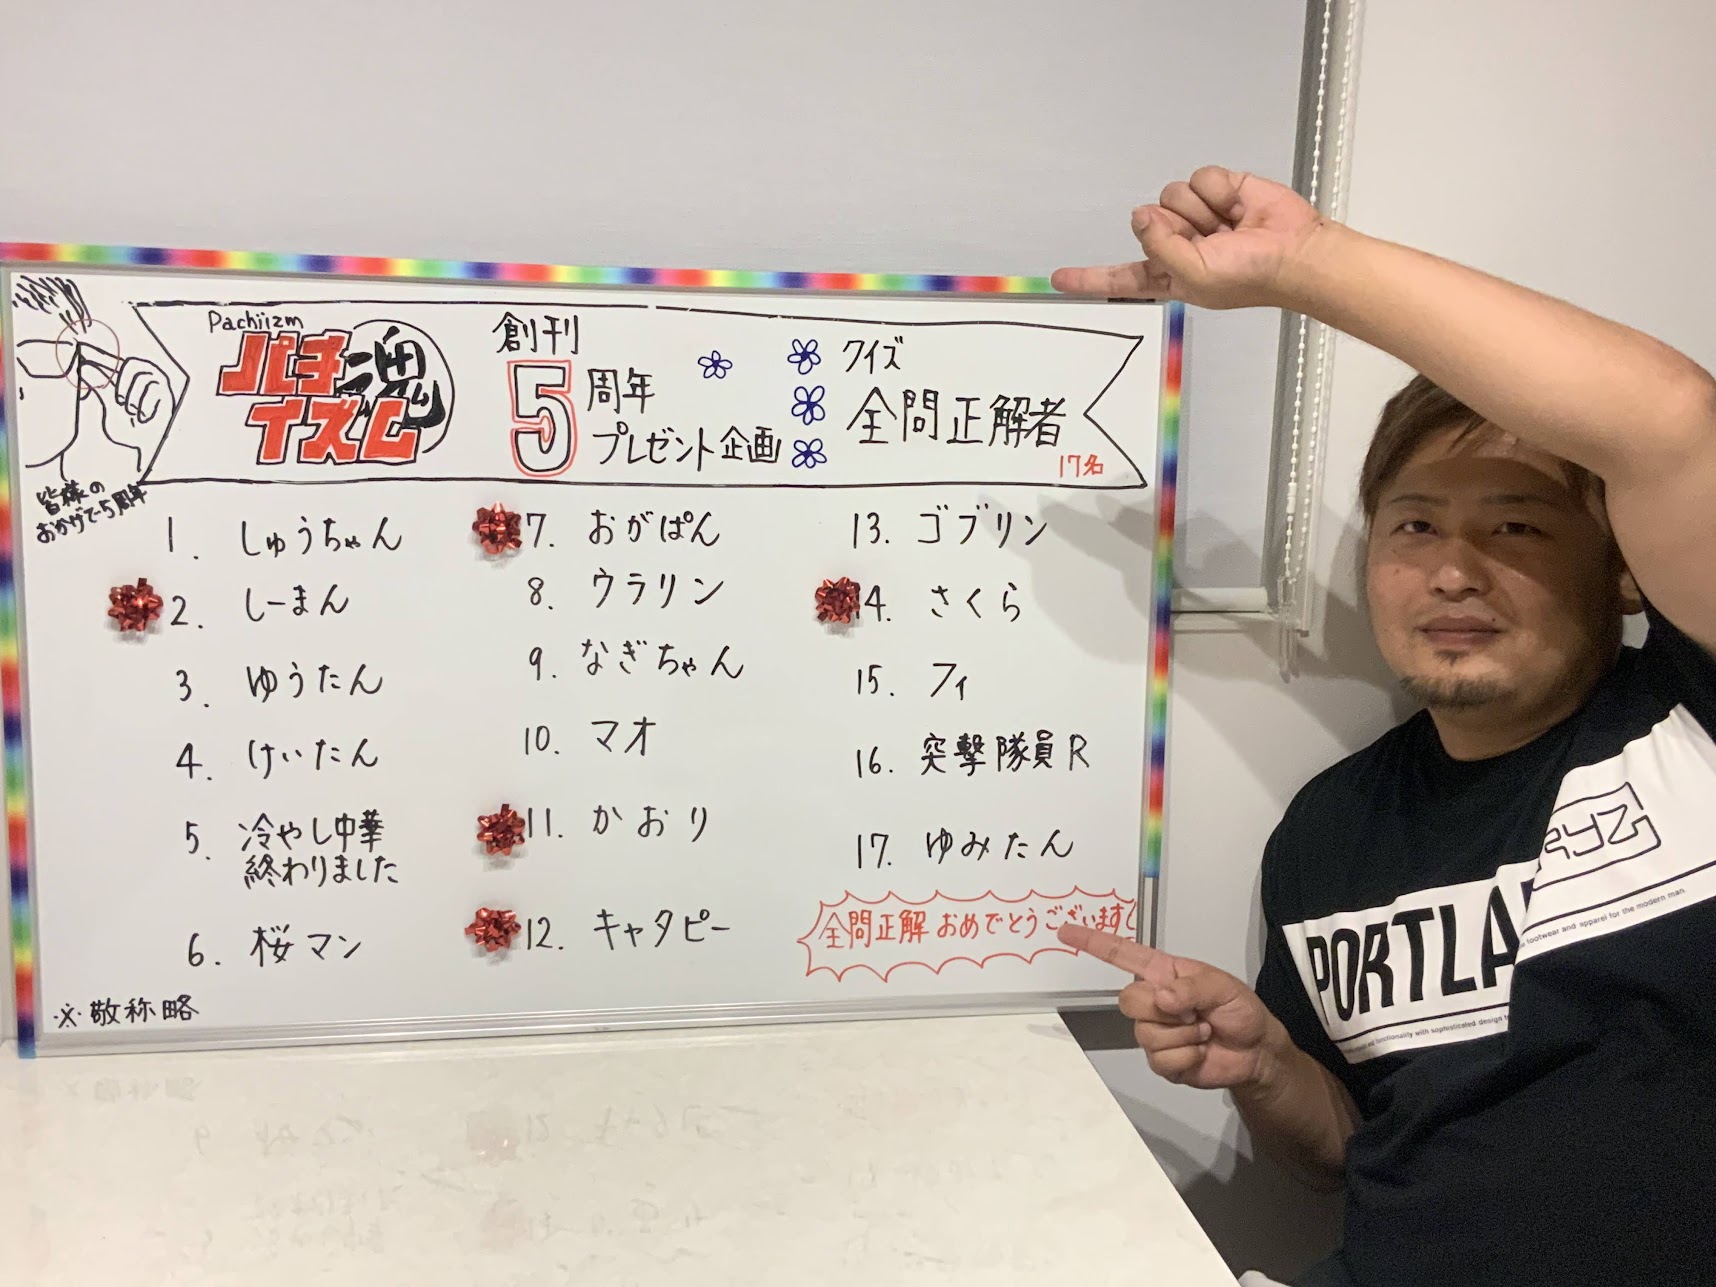 Pachiizm
パチ
イズム
魂
創刊
5周年
プレゼント企画
クイズ
全問正解者
17名
皆様の
おかげで5周年
1. しゅうちゃん
2. しーまん
3. ゆうたん
4. けいたん
5. 冷やし中華
終わりました
6. 桜マン
7. おがぱん
8. ウラリン
9. なぎちゃん
10. マオ
11. かおり
12. キャタピー
13. ゴブリン
14. さくら
15. フィ
16. 突撃隊員R
17. ゆみたん
全問正解 おめでとうございます
※敬称略
PORTLA
footwear and apparel for the modern man
functionality with sophisticated design